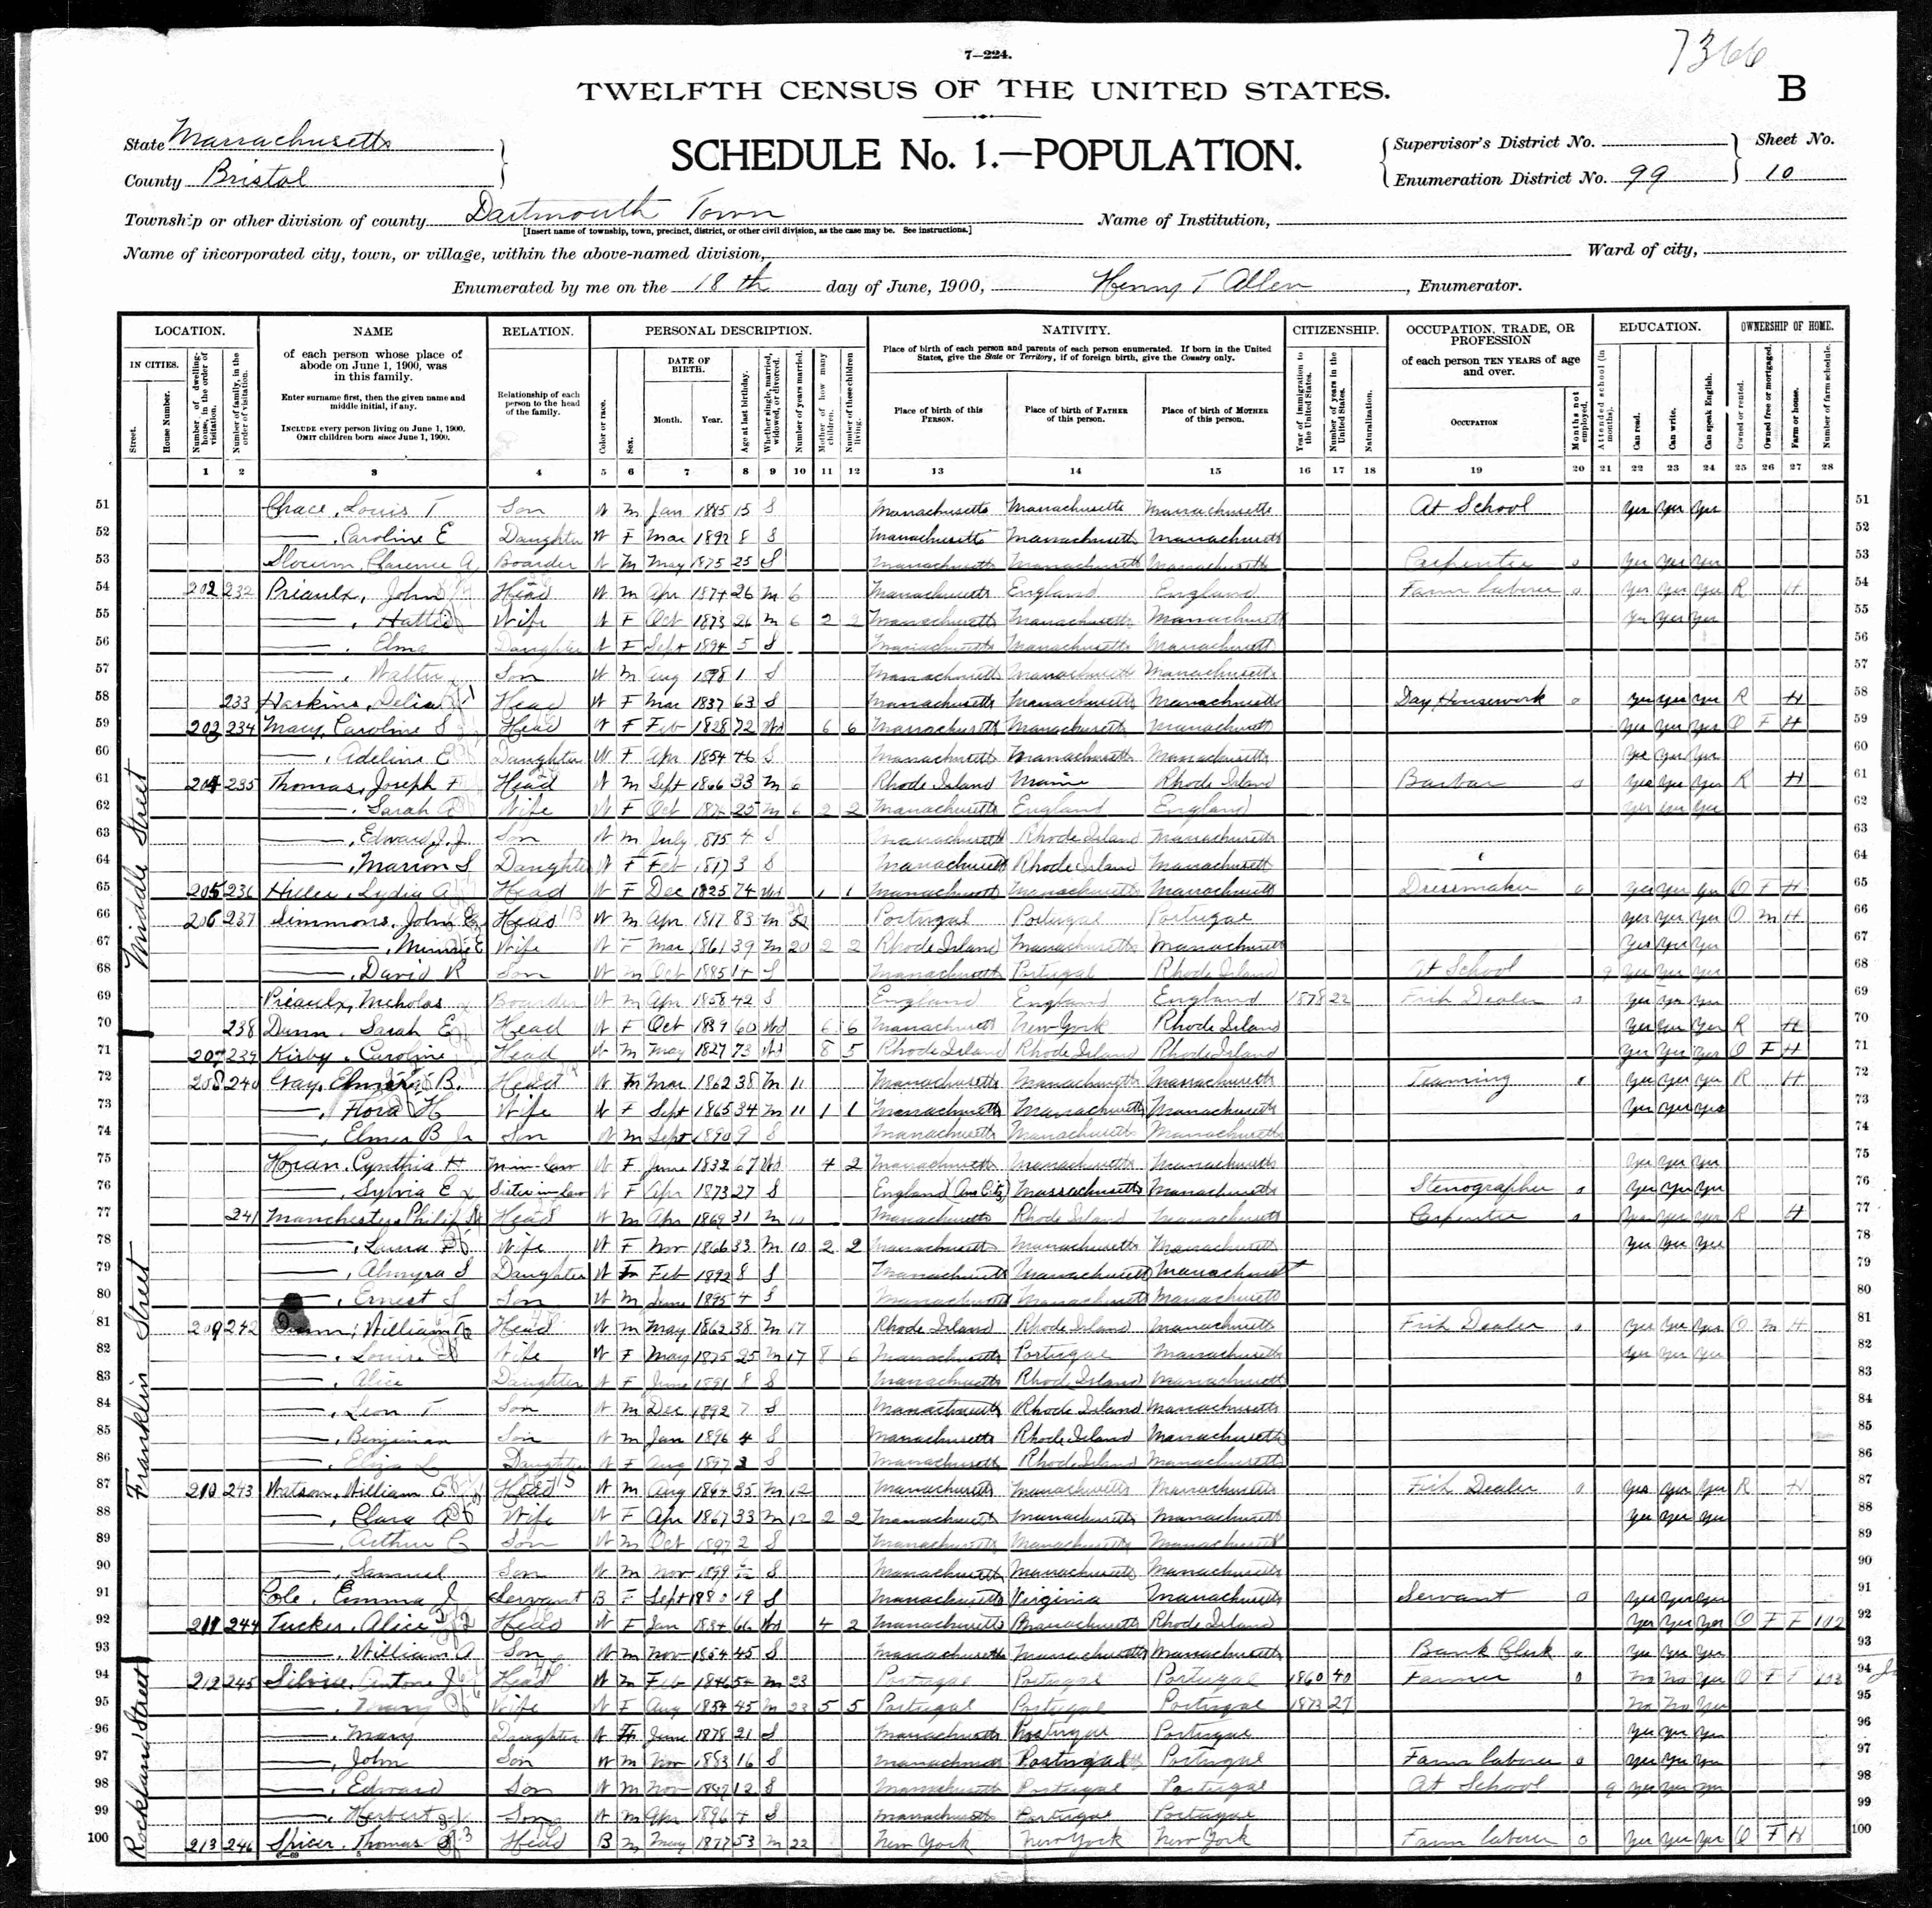 7366
7—224.
TWELFTH CENSUS OF THE UNITED STATES.
B
State Massachusetts
County Bristol
SCHEDULE No. 1.—POPULATION.
Supervisor's District No.
Enumeration District No. 99
Sheet No.
10
Township or other division of county Dartmouth Town
[Insert name of township, town, precinct, district, or other civil division, as the case may be. See instructions.]
Name of Institution,
Name of incorporated city, town, or village, within the above-named division,
Ward of city,
Enumerated by me on the 18th day of June, 1900, Henry T Allen, Enumerator.
LOCATION. NAME RELATION. PERSONAL DESCRIPTION. NATIVITY. CITIZENSHIP. OCCUPATION, TRADE, OR PROFESSION EDUCATION. OWNERSHIP OF HOME.
IN CITIES.
Street.
House Number.
Number of dwelling-house, in the order of visitation.
Number of family, in the order of visitation.
of each person whose place of abode on June 1, 1900, was in this family.
Enter surname first, then the given name and middle initial, if any.
INCLUDE every person living on June 1, 1900. OMIT children born since June 1, 1900.
Relationship of each person to the head of the family.
Color or race.
Sex.
DATE OF BIRTH.
Month. Year.
Age at last birthday.
Whether single, married, widowed, or divorced.
Number of years married.
Mother of how many children.
Number of these children living.
Place of birth of each person and parents of each person enumerated. If born in the United States, give the State or Territory, if of foreign birth, give the Country only.
Place of birth of this PERSON.
Place of birth of FATHER of this person.
Place of birth of MOTHER of this person.
Year of immigration to the United States.
Number of years in the United States.
Naturalization.
of each person TEN YEARS of age and over.
OCCUPATION
Months not employed.
Attended school (in months).
Can read.
Can write.
Can speak English.
Owned or rented.
Owned free or mortgaged.
Farm or house.
Number of farm schedule.
1 2 3 4 5 6 7 8 9 10 11 12 13 14 15 16 17 18 19 20 21 22 23 24 25 26 27 28
51 Chace, Louis T Son W M Jan 1885 15 S Massachusetts Massachusetts Massachusetts At School yes yes yes 51
52 ——, Caroline E Daughter W F Mar 1892 8 S Massachusetts Massachusetts Massachusetts 52
53 Slocum, Clarence A Boarder W M May 1875 25 S Massachusetts Massachusetts Massachusetts Carpenter 0 yes yes yes 53
54 202 232 Prieaulx, John Head W M Apr 1874 26 M 6 Massachusetts England England Farm laborer 0 yes yes yes R H 54
55 ——, Hattie Wife W F Oct 1873 26 M 6 2 2 Massachusetts Massachusetts Massachusetts yes yes yes 55
56 ——, Elma Daughter W F Sept 1894 5 S Massachusetts Massachusetts Massachusetts 56
57 ——, Walter Son W M Aug 1898 1 S Massachusetts Massachusetts Massachusetts 57
58 233 Haskins, Delia Head W F Mar 1837 63 S Massachusetts Massachusetts Massachusetts Day Housework 0 yes yes yes R H 58
59 203 234 Macy, Caroline S Head W F Feb 1828 72 Wd 6 6 Massachusetts Massachusetts Massachusetts yes yes yes O F H 59
60 ——, Adeline E Daughter W F Apr 1854 46 S Massachusetts Massachusetts Massachusetts yes yes yes 60
61 204 235 Thomas, Joseph F Head W M Sept 1866 33 M 6 Rhode Island Maine Rhode Island Barbar 0 yes yes yes R H 61
62 ——, Sarah A Wife W F Oct 25 M 6 2 2 Massachusetts England England yes yes yes 62
63 ——, Edward J. J. Son W M July 4 S Massachusetts Rhode Island Massachusetts 63
64 ——, Marion S Daughter W F Feb 3 S Massachusetts Rhode Island Massachusetts 64
65 205 236 Hiller, Lydia A Head W F Dec 1825 74 Wd 1 1 Massachusetts Massachusetts Massachusetts Dressmaker 0 yes yes yes O F H 65
66 206 237 Simmons, John Head W M Apr 1817 83 M Portugal Portugal Portugal yes yes yes O M H 66
67 ——, Minnie E Wife W F Mar 1861 39 M 20 2 2 Rhode Island Massachusetts Massachusetts yes yes yes 67
68 ——, David R Son W M Oct 1885 14 S Massachusetts Portugal Rhode Island At School 9 yes yes yes 68
69 Prieaulx, Nicholas Boarder W M Apr 1858 42 S England England England 1878 22 Fish Dealer 0 yes yes yes 69
70 238 Dunn, Sarah E Head W F Oct 1839 60 Wd 6 6 Massachusetts New York Rhode Island yes yes yes R H 70
71 207 239 Kirby, Caroline Head W M May 1827 73 Wd 8 5 Rhode Island Rhode Island Rhode Island yes yes yes O F H 71
72 208 240 Gray, Elmer B. Head W M Mar 1862 38 M 11 Massachusetts Massachusetts Massachusetts Teaming yes yes yes R H 72
73 ——, Flora H Wife W F Sept 1865 34 M 11 1 1 Massachusetts Massachusetts Massachusetts yes yes yes 73
74 ——, Elmer B Jr Son W M Sept 1890 9 S Massachusetts Massachusetts Massachusetts 74
75 Horan, Cynthia H M in-law W F June 1832 67 Wd 4 2 Massachusetts Massachusetts Massachusetts yes yes yes 75
76 ——, Sylvia E Sister in law W F Apr 1873 27 S England (Am Citz) Massachusetts Massachusetts Stenographer 0 yes yes yes 76
77 241 Manchester, Philip Head W M Apr 1869 31 M 10 Massachusetts Rhode Island Massachusetts Carpenter 0 yes yes yes R H 77
78 ——, Laura Wife W F Nov 1866 33 M 10 2 2 Massachusetts Massachusetts Massachusetts yes yes yes 78
79 ——, Almyra S Daughter W F Feb 1892 8 S Massachusetts Massachusetts Massachusetts 79
80 ——, Ernest S Son W M June 1895 4 S Massachusetts Massachusetts Massachusetts 80
81 209 242 Dunn, William Head W M May 1862 38 M 17 Rhode Island Rhode Island Massachusetts Fish Dealer 0 yes yes yes O M H 81
82 ——, Louise Wife W F May 1875 25 M 17 8 6 Massachusetts Portugal Massachusetts yes yes yes 82
83 ——, Alice Daughter W F June 1891 8 S Massachusetts Rhode Island Massachusetts 83
84 ——, Leon T Son W M Dec 1892 7 S Massachusetts Rhode Island Massachusetts 84
85 ——, Benjaman Son W M Jan 1896 4 S Massachusetts Rhode Island Massachusetts 85
86 ——, Eliza L Daughter W F Aug 1897 S Massachusetts Rhode Island Massachusetts 86
87 210 243 Watson, William Head W M Aug 1864 35 M 12 Massachusetts Massachusetts Massachusetts Fish Dealer 0 yes yes yes R H 87
88 ——, Clara A Wife W F Apr 1867 33 M 12 2 2 Massachusetts Massachusetts Massachusetts yes yes yes 88
89 ——, Arthur C Son W M Oct 1897 2 S Massachusetts Massachusetts Massachusetts 89
90 ——, Samuel Son W M Nov 1899 S Massachusetts Massachusetts Massachusetts 90
91 Cole, Emma J Servant B F Sept 1880 19 S Massachusetts Virginia Massachusetts Servant 0 yes yes yes 91
92 211 244 Tucker, Alice Head W F Jan 1834 66 Wd 4 2 Massachusetts Massachusetts Rhode Island yes yes yes O F F 102 92
93 ——, William A Son W M Nov 1854 45 S Massachusetts Massachusetts Massachusetts Bank Clerk 0 yes yes yes 93
94 212 245 Silvia, Antone J Head W M Feb 1846 54 M 23 Portugal Portugal Portugal 1860 40 Farmer 0 no no yes O F F 103 94
95 ——, Mary Wife W F Aug 1854 45 M 23 5 5 Portugal Portugal Portugal 1873 27 no no yes 95
96 ——, Mary Daughter W F June 1878 21 S Massachusetts Portugal Portugal yes yes yes 96
97 ——, John Son W M Nov 1883 16 S Massachusetts Portugal Portugal Farm laborer 0 yes yes yes 97
98 ——, Edward Son W M Nov 12 S Massachusetts Portugal Portugal At School 9 yes yes yes 98
99 ——, Herbert Son W M Apr 1896 4 S Massachusetts Portugal Portugal 99
100 213 246 Spicer, Thomas Head B M May 53 M 22 New York New York New York Farm laborer 0 yes yes yes O F H 100
Middle Street
Franklin Street
Rockland Street